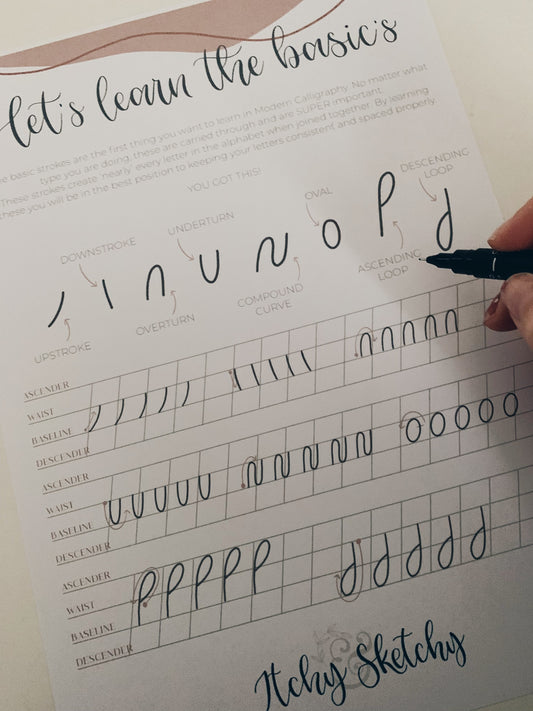 let's learn the basic's
basic strokes are the first thing you want to learn in Modern Calligraphy. No matter what
type you are doing, these are carried through and are SUPER important.
These strokes create 'nearly' every letter in the alphabet when joined together. By learning
these you will be in the best position to keeping your letters consistent and spaced properly
YOU GOT THIS!
DESCENDING
LOOP
OVAL
UNDERTURN
DOWNSTROKE
ASCENDING
LOOP
COMPOUND
CURVE
OVERTURN
UPSTROKE
ASCENDER
WAIST
BASELINE
DESCENDER
ASCENDER
WAIST
BASELINE
DESCENDER
ASCENDER
WAIST
BASELINE
DESCENDER
Itchy Sketchy